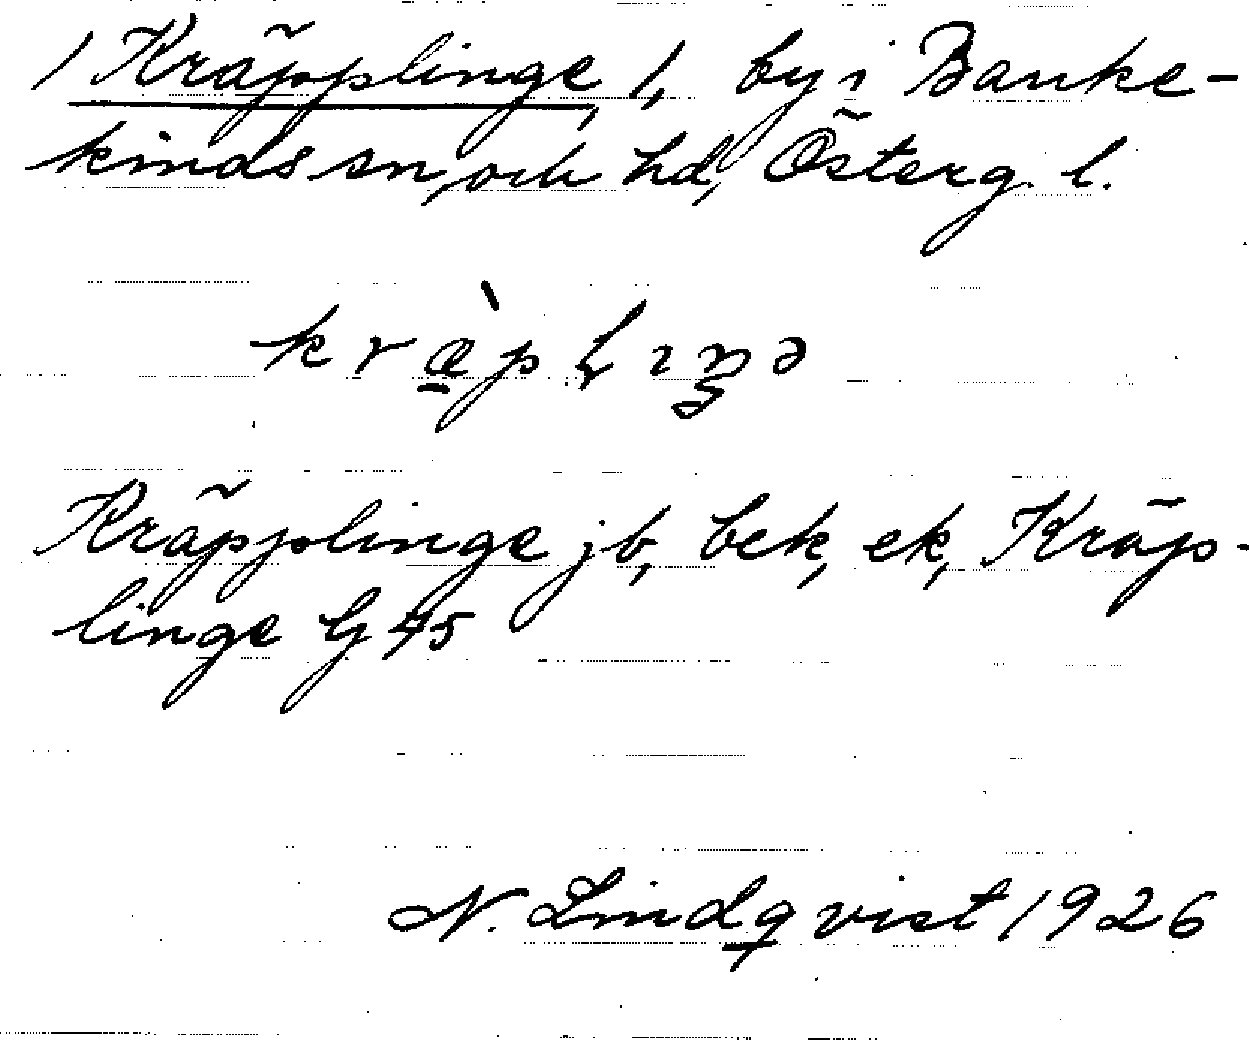 / Kräpplinge /, by i Banke-
kinds sn, och hd, Österg. l.
Kräpplinge jb, bek, ek, Kräp-
linge G 45
N. Lindqvist 1926